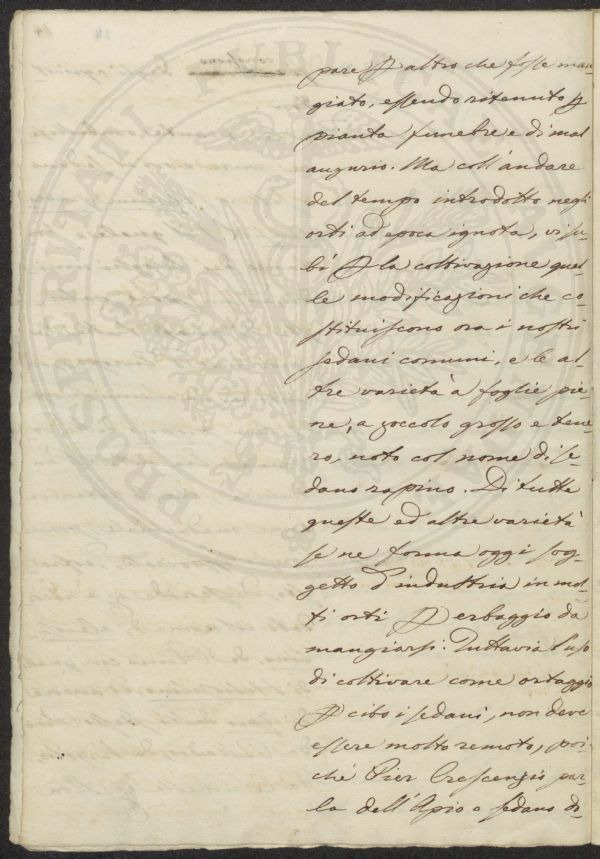 pare p altro che fosse man-
giato, essendo ritenuto p
pianta funebre e di mal
augurio. Ma coll'andare
del tempo introdotto negli
orti ad epoca ignota, vi su-
bì p la coltivazione quel-
le modificazioni che co-
stituiscono ora i nostri
sedani comuni, e le al-
tre varietà a foglie pie-
ne, a zoccolo grosso e tene-
ro, noto col nome di se-
dano rapino. Di tutte
queste ed altre varietà
se ne forma oggi sog-
getto d'industria in mol-
ti orti p erbaggio da
mangiarsi: Tuttavia l'uso
di coltivare come ortaggio
p cibo i sedani, non deve
essere molto remoto, poi-
ché Pier Crescenzio par-
la dell'Apio o sedano di-